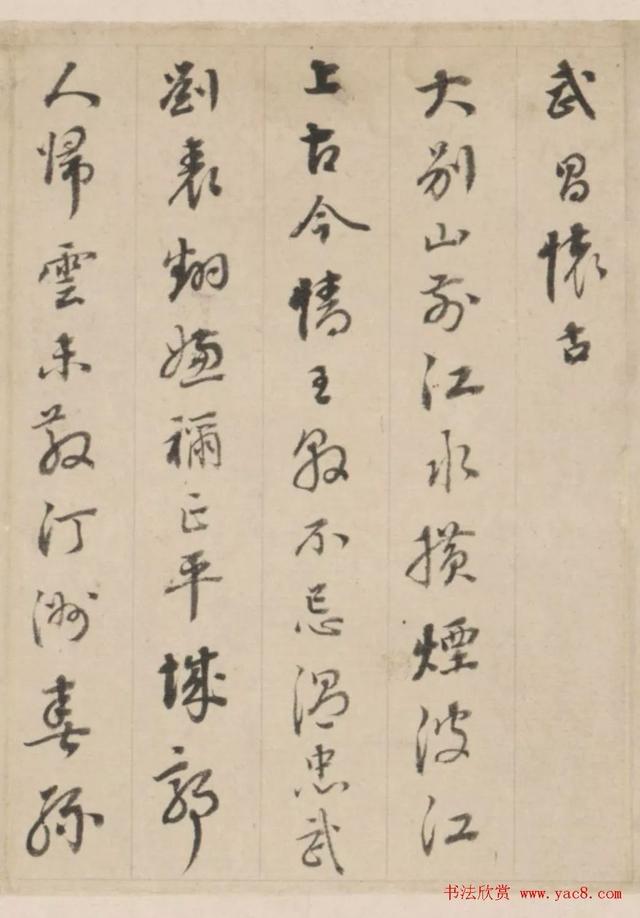 武昌懷古
大别山前江水橫煙波江
上古今情王敦不忌溫忠武
劉表翻嫌禰正平城郭
人歸雲未散汀洲春緑
书法欣赏 www.yac8.com